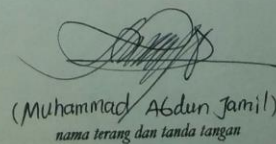 (Muhammad Abdun Jamil)
nama terang dan tanda tangan